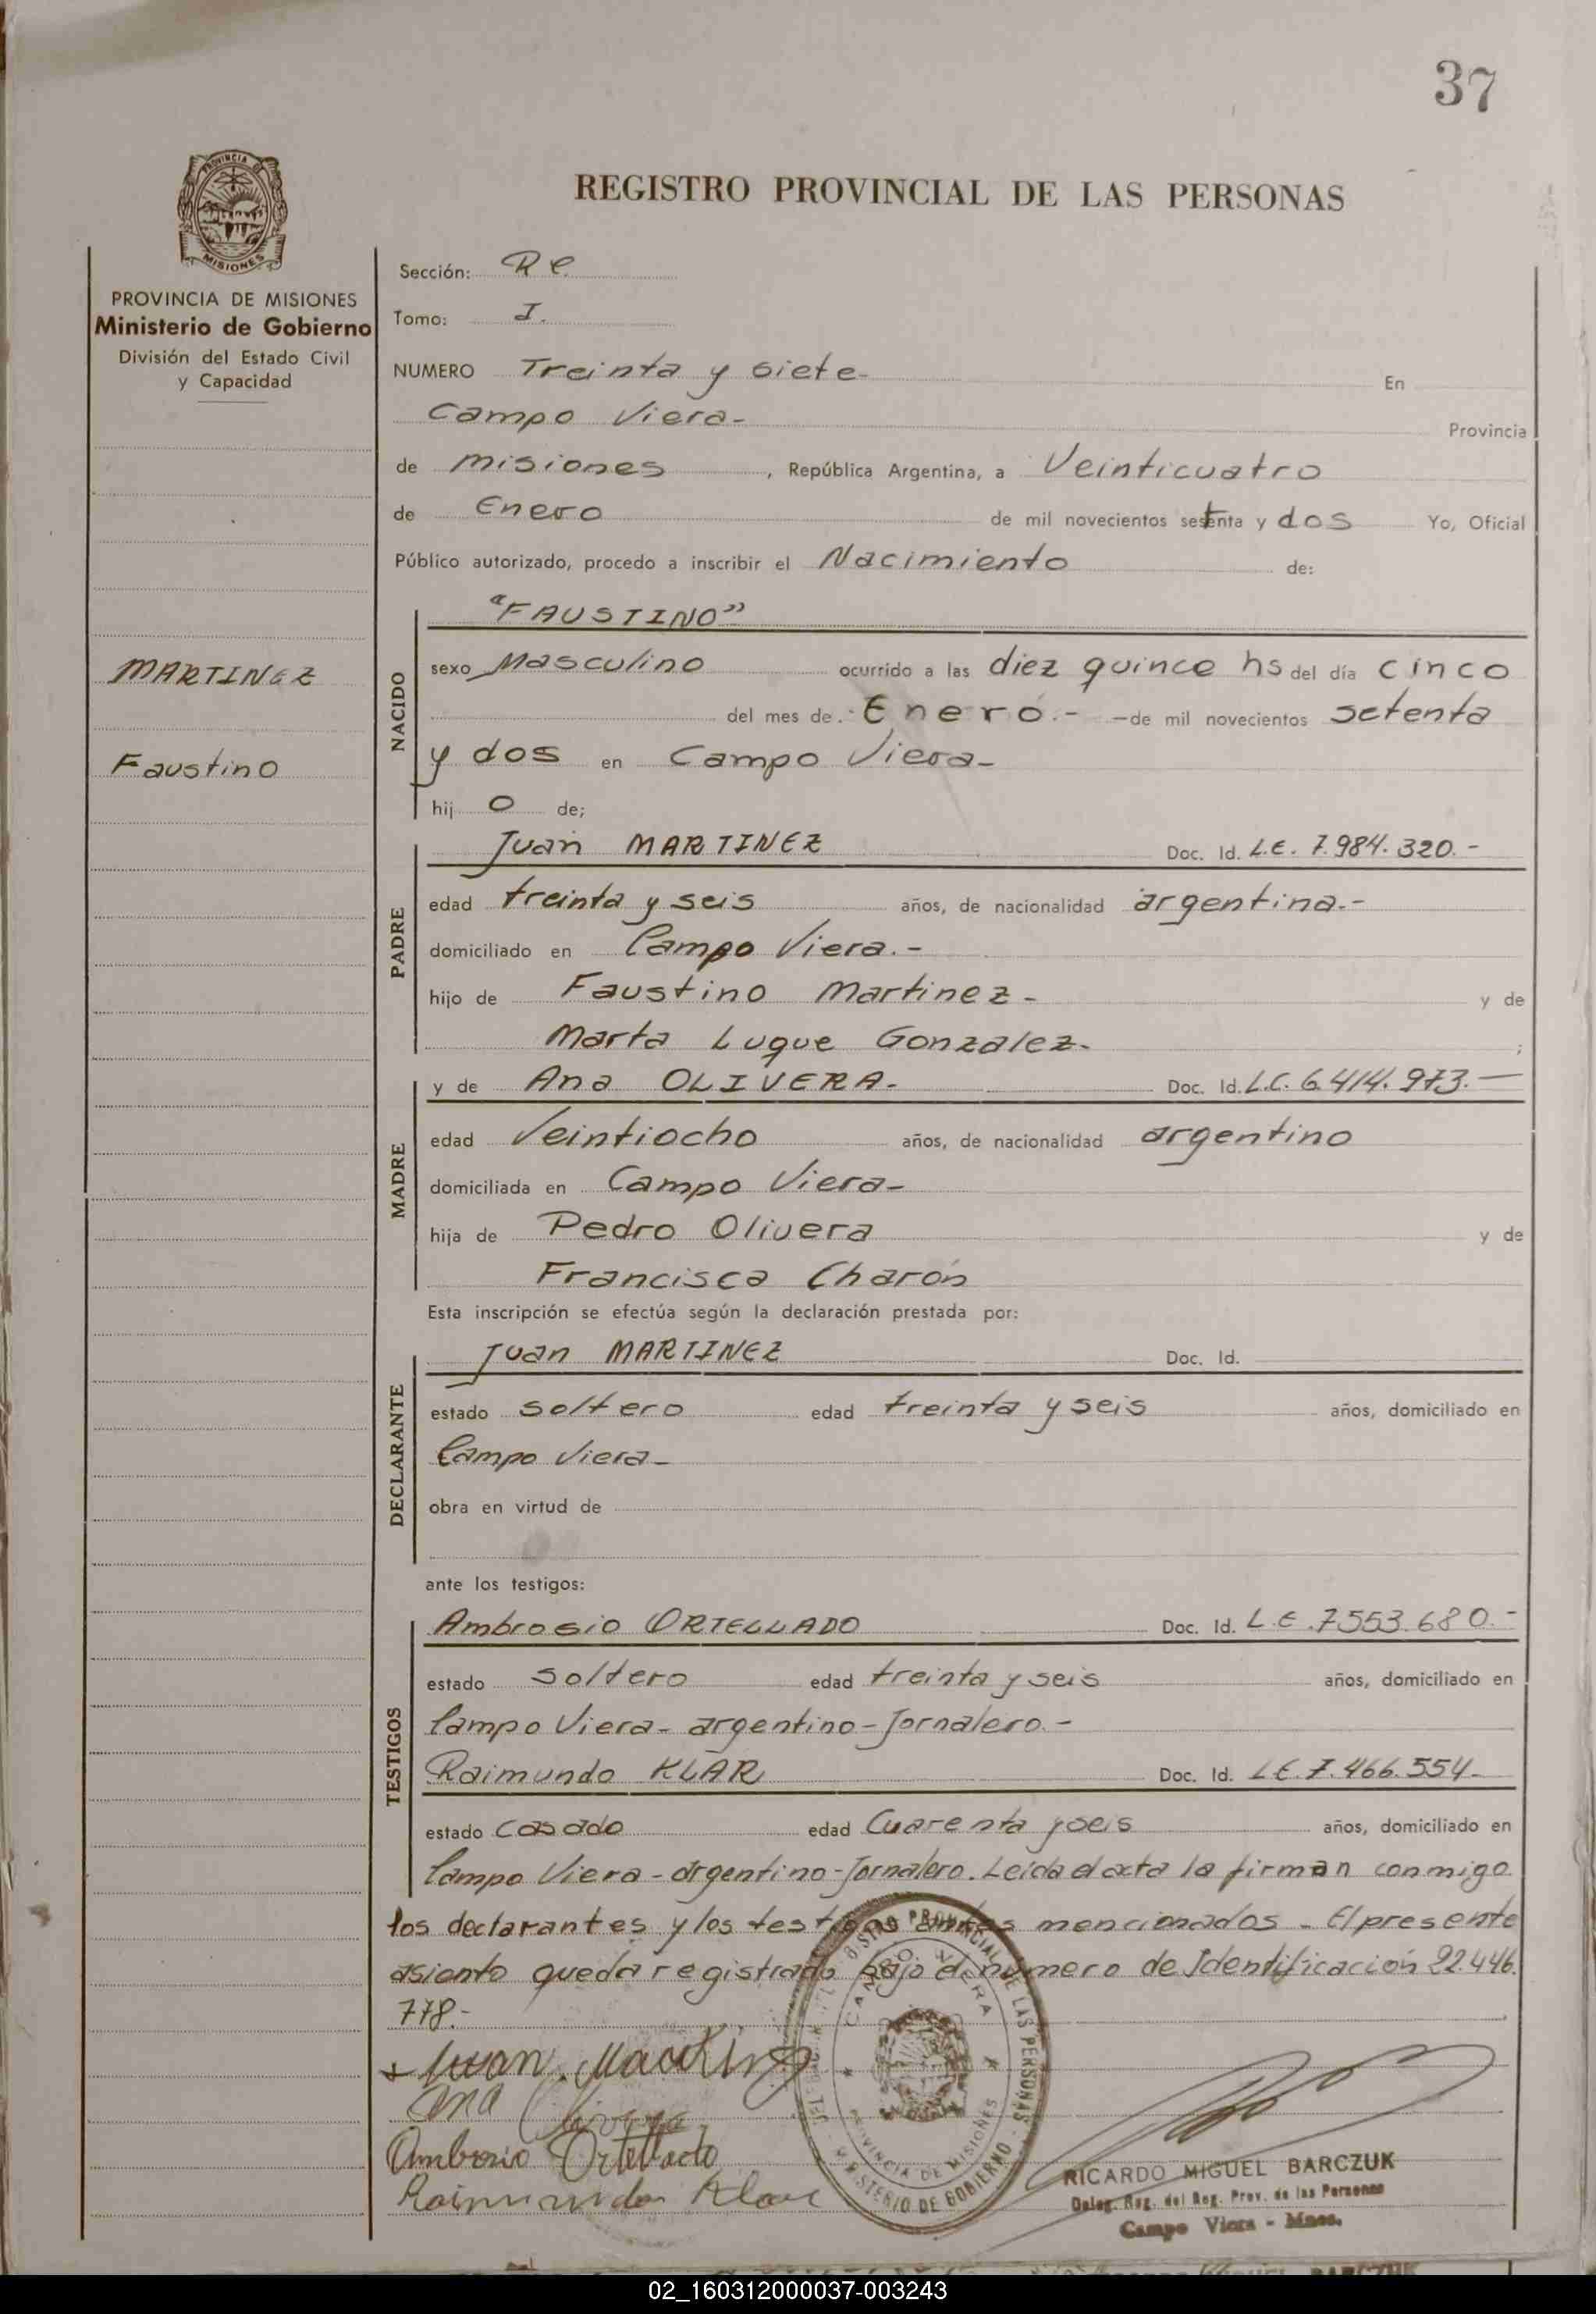 37
PROVINCIA DE
MISIONES
REGISTRO PROVINCIAL DE LAS PERSONAS
PROVINCIA DE MISIONES
Ministerio de Gobierno
División del Estado Civil
y Capacidad
MARTINEZ
Faustino
Sección: R C.
Tomo: I.
NUMERO Treinta y siete- En
Campo Viera- Provincia
de misiones , República Argentina, a Veinticuatro
de Enero de mil novecientos setenta y dos Yo, Oficial
Público autorizado, procedo a inscribir el Nacimiento de:
NACIDO
"FAUSTINO"
sexo Masculino ocurrido a las diez quince hs del día cinco
del mes de Enero.- -de mil novecientos setenta
y dos en Campo Viera-
hij o de;
PADRE
Juan MARTINEZ Doc. Id. L.E. 7.984.320.-
edad treinta y seis años, de nacionalidad argentina.-
domiciliado en Campo Viera.-
hijo de Faustino Martinez- y de
Marta Luque Gonzalez- ;
MADRE
y de Ana OLIVERA- Doc. Id. L.C. 6.414.973.—
edad Veintiocho años, de nacionalidad argentino
domiciliada en Campo Viera-
hija de Pedro Olivera y de
Francisca Charón
Esta inscripción se efectúa según la declaración prestada por:
DECLARANTE
Juan MARTINEZ Doc. Id.
estado soltero edad treinta y seis años, domiciliado en
Campo Viera-
obra en virtud de
ante los testigos:
TESTIGOS
Ambrosio ORTELLADO Doc. Id. L.E. 7553.680.-
estado soltero edad treinta y seis años, domiciliado en
Campo Viera- argentino-Jornalero.-
Raimundo KLAR Doc. Id. L.E. 7.466.554-
estado casado edad Cuarenta y seis años, domiciliado en
Campo Viera-argentino-Jornalero. Leida el acta la firman conmigo
los declarantes y los testigos antes mencionados - El presente
asiento queda registrado bajo el número de Identificación 22.446.
778.-
Juan Martinez
Ana Olivera
Ambrosio Ortellado
Raimundo Klar
REGISTRO PROVINCIAL DE LAS PERSONAS
CAMPO VIERA
PROVINCIA DE MISIONES
MINISTERIO DE GOBIERNO
RICARDO MIGUEL BARCZUK
Deleg. Reg. del Reg. Prov. de las Personas
Campo Viera - Mnes.
02_160312000037-003243